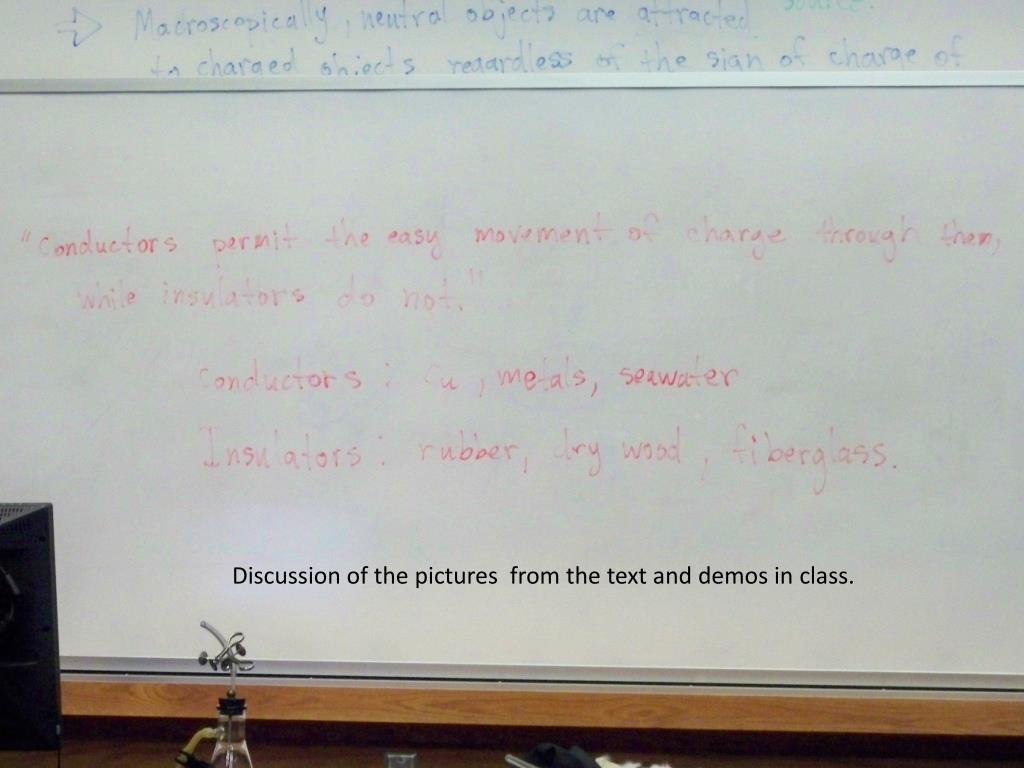 source.
⇒ Macroscopically, neutral objects are attracted
to charged objects regardless of the sign of charge of
"Conductors permit the easy movement of charge through them,
while insulators do not."
Conductors: Cu, metals, seawater
Insulators: rubber, dry wood, fiberglass.
Discussion of the pictures from the text and demos in class.